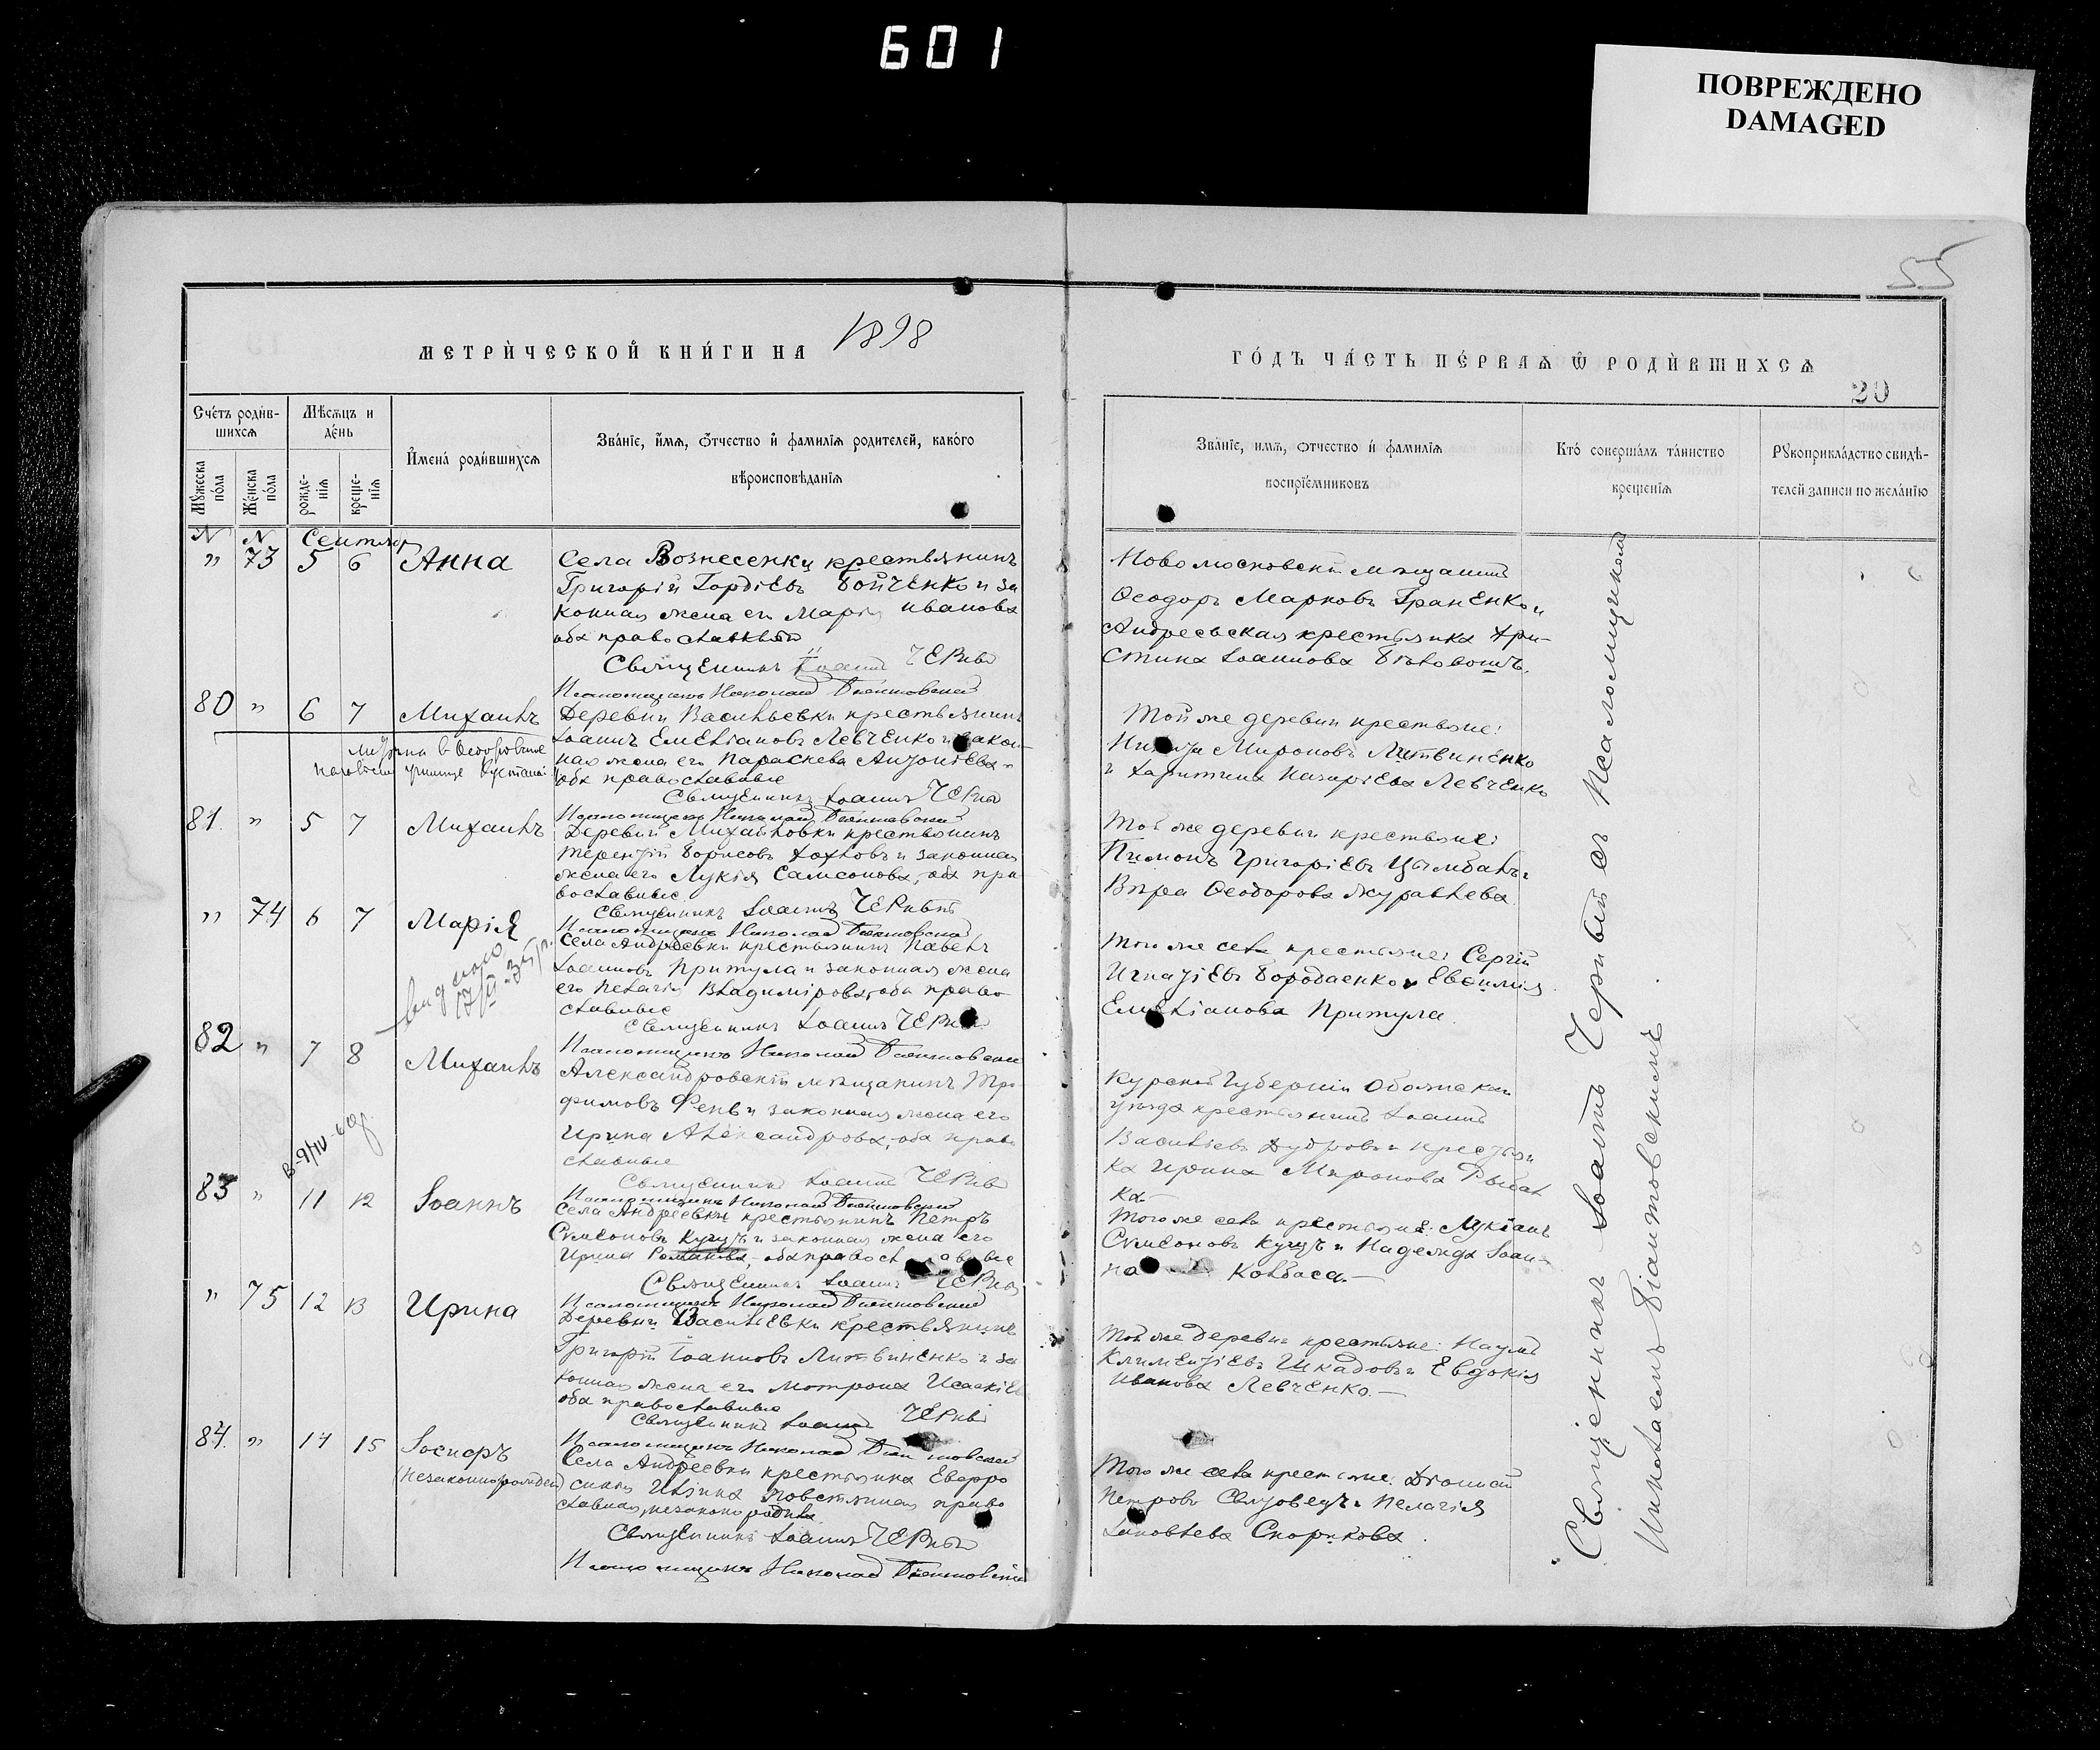 601
ПОВРЕЖДЕНО
DAMAGED
55
МЕТРИЧЕСКОЙ КНИГИ НА 1898
ГОДЪ ЧАСТЬ ПЕРВАЯ Ѿ РОДИВШИХСЯ
20
Счетъ родив-
шихся
Мѣсяцъ и
день
Имена родившихся
Званіе, имя, отчество и фамилія родителей, какого
вѣроисповѣданія
Мужеска
пола
Женска
пола
рожде-
нія
креще-
нія
Званіе, имя, отчество и фамилія
воспріемниковъ
Кто совершалъ таинство
крещенія
Рукоприкладство свидѣ-
телей записи по желанію
N N Сентябр
" 73 5 6 Анна
Села Вознесенки крестьянинъ
Григорій Гордіевъ Бойченко и за
конная жена его Марія Иванова
оба православные
Священникъ Іоаннъ Черный
Псаломщикъ Николай
Новомосковскій мѣщанинъ
Ѳеодоръ Марковъ Граненко и
Андреевская крестьянка Хри-
стина Іоаннова
80 " 6 7 Михаилъ
Деревни Васильевки крестьянинъ
Іоаннъ Емеліановъ Левченко и закон
ная жена его Параскева Антоніева
оба православные
Священникъ Іоаннъ Черный
Псаломщикъ Николай
Той же деревни крестьяне:
Никита Мироновъ Литвиненко
и Харитина Назаріева Левченко
81. " 5 7 Михаилъ
Деревни Михайловки крестьянинъ
Терентій Борисовъ Хохловъ и законная
жена его Лукія Самсонова, оба пра
вославные
Священникъ Іоаннъ Черный
Псаломщикъ Николай
Той же деревни крестьяне:
Пимонъ Григоріевъ Цымбалъ и
Вѣра Ѳеодорова Журавлева
" 74 6 7 Марія
Села Андреевки крестьянинъ Павелъ
Іоанновъ Притула и законная жена
его Пелагія Владимірова, оба право
славные
Священникъ Іоаннъ Черный
Псаломщикъ Николай
Того же села крестьяне: Сергій
Игнатіевъ Бородаенко и Евѳимія
Емеліанова Притула.
82 " 7 8 Михаилъ
Александровскій мѣщанинъ Тро
фимовъ и законная жена его
Ирина Александрова, оба право
славные
Священникъ Іоаннъ Черный
Псаломщикъ Николай
Курской Губерніи Обоянскаго
уѣзда крестьянинъ Іоаннъ
Васильевъ и крестьян
ка Ирина Миронова Рыбал
ка.
83 " 11 12 Іоаннъ
Села Андреевки крестьянинъ Петръ
Симеоновъ Куцъ и законная жена его
Ирина Романова, оба православные
Священникъ Іоаннъ Черный
Псаломщикъ Николай
Того же села крестьяне: Лукіанъ
Симеоновъ Куцъ и Надежда Іоан-
но Колбаса.
" 75 12 13 Ирина
Деревни Василіевки крестьянинъ
Григорій Іоанновъ Литвиненко и за
конная жена его Мотрона Исаакіева
оба православные
Священникъ Іоаннъ Черный
Псаломщикъ Николай
Той же деревни крестьяне: Наумъ
Климентіевъ Шкадовъ и Евдокія
Иванова Левченко.
84. " 14 15 Іосифъ
(незаконнорожден)
Села Андреевки крестьянка Евфро
синія Повстяная право
славная, незаконно родила
Священникъ Іоаннъ Черный
Псаломщикъ Николай
Того же села крестьяне:
Петровъ и Пелагія
Іаковлева Скорикова.
Священникъ Іоаннъ Черный съ Псаломщикомъ
Николаемъ Біантовскимъ.